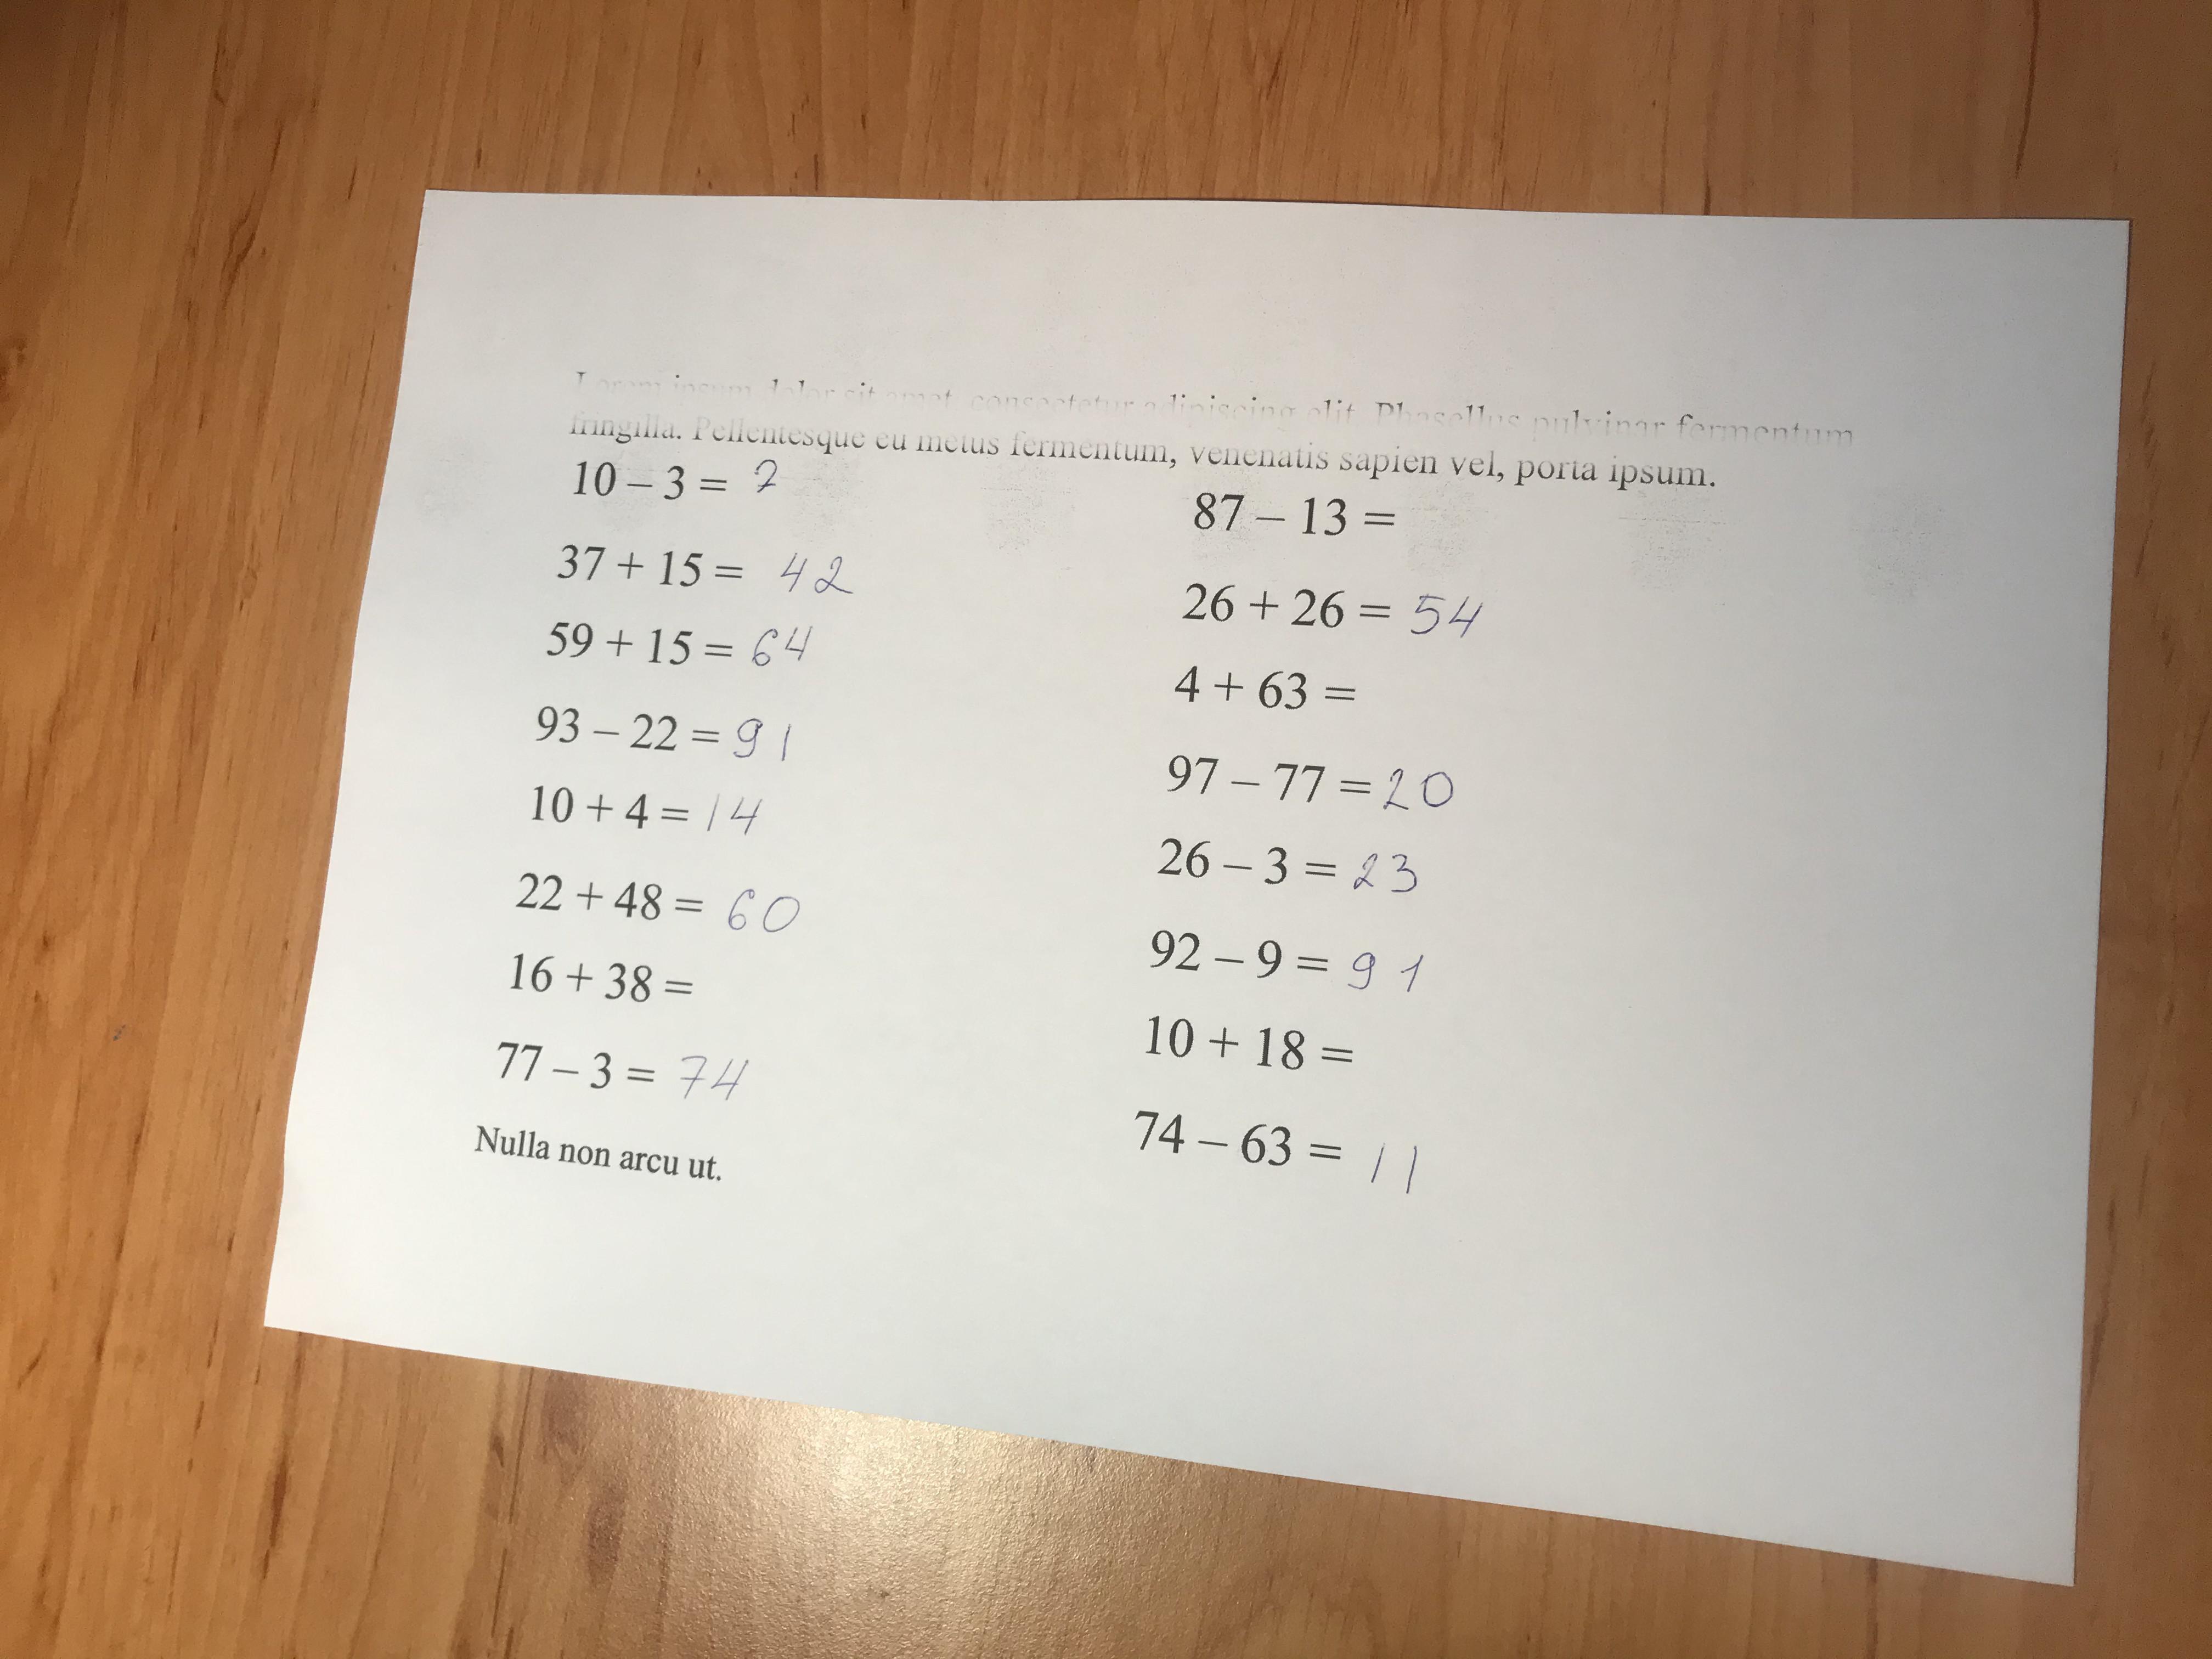 Lorem ipsum dolor sit amet, consectetur adipiscing elit. Phasellus pulvinar fermentum
fringilla. Pellentesque eu metus fermentum, venenatis sapien vel, porta ipsum.
10 – 3 = 7
37 + 15 = 42
59 + 15 = 64
93 – 22 = 91
10 + 4 = 14
22 + 48 = 60
16 + 38 =
77 – 3 = 74
Nulla non arcu ut.
87 – 13 =
26 + 26 = 54
4 + 63 =
97 – 77 = 20
26 – 3 = 23
92 – 9 = 91
10 + 18 =
74 – 63 = 11